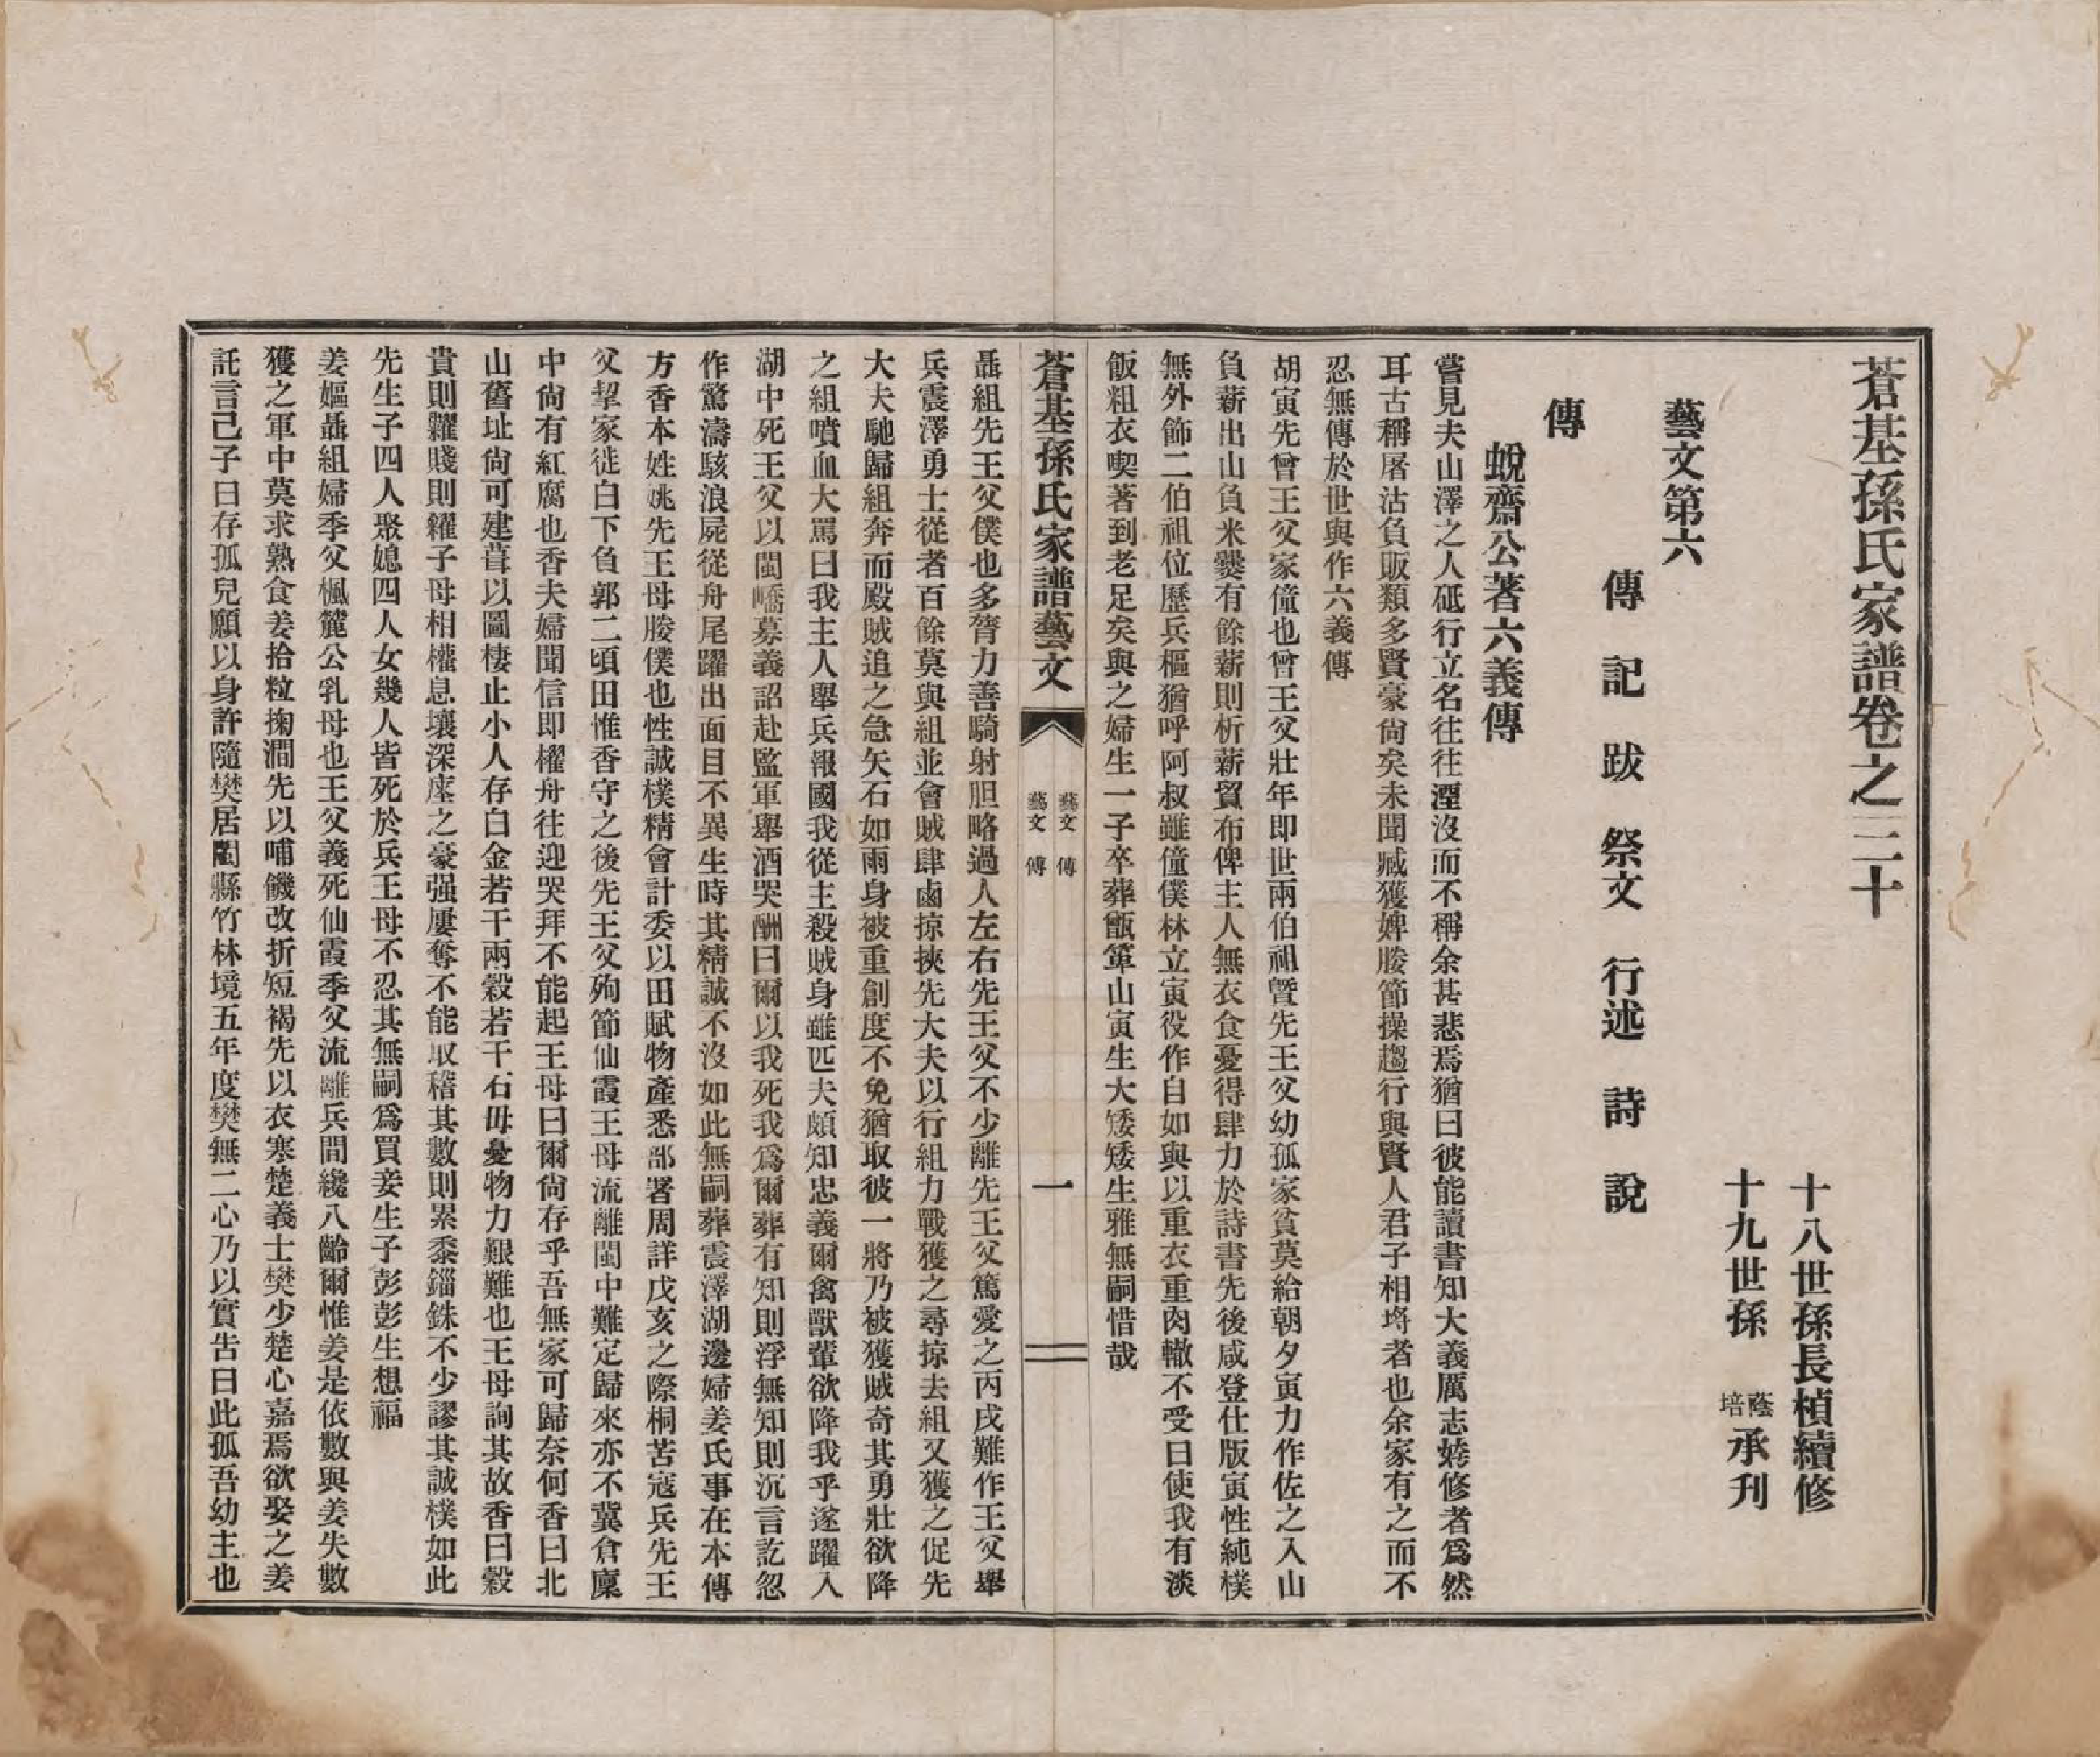 蒼基孫氏家譜卷之二十
十八世孫長楨續修
十九世孫蔭培承刊
藝文第六
傳 記 跋 祭文 行述 詩 說
傳
蛻齋公著六義傳
嘗見夫山澤之人砥行立名往往湮沒而不稱余甚悲焉猶曰彼能讀書知大義厲志姱修者爲然
耳古稱屠沽負販類多賢豪尙矣未聞臧獲婢媵節操趨行與賢人君子相埓者也余家有之而不
忍無傳於世與作六義傳
胡寅先曾王父家僮也曾王父壯年即世兩伯祖曁先王父幼孤家貧莫給朝夕寅力作佐之入山
負薪出山負米爨有餘薪則析薪貿布俾主人無衣食憂得肆力於詩書先後咸登仕版寅性純樸
無外飾二伯祖位歷兵樞猶呼阿叔雖僮僕林立寅役作自如與以重衣重肉轍不受曰使我有淡
飯粗衣喫著到老足矣與之婦生一子卒葬甑箄山寅生大矮矮生雅無嗣惜哉
蒼基孫氏家譜藝文
藝文 傳
藝文 傳
一
聶組先王父僕也多膂力善騎射胆略過人左右先王父不少離先王父篤愛之丙戌難作王父舉
兵震澤勇士從者百餘莫與組並會賊肆鹵掠挾先大夫以行組力戰獲之尋掠去組又獲之促先
大夫馳歸組奔而殿賊追之急矢石如雨身被重創度不免猶取彼一將乃被獲賊奇其勇壯欲降
之組噴血大罵曰我主人舉兵報國我從主殺賊身雖匹夫頗知忠義爾禽獸輩欲降我乎遂躍入
湖中死王父以閩嶠慕義詔赴監軍舉酒哭酬曰爾以我死我爲爾葬有知則浮無知則沉言訖忽
作驚濤駭浪屍從舟尾躍出面目不異生時其精誠不沒如此無嗣葬震澤湖邊婦姜氏事在本傳
方香本姓姚先王母媵僕也性誠樸精會計委以田賦物產悉部署周詳戊亥之際桐苦寇兵先王
父挈家徙白下負郭二頃田惟香守之後先王父殉節仙霞王母流離閩中難定歸來亦不冀倉廩
中尙有紅腐也香夫婦聞信即櫂舟往迎哭拜不能起王母曰爾尙存乎吾無家可歸奈何香曰北
山舊址尙可建葺以圖棲止小人存白金若干兩穀若干石毋憂物力艱難也王母詢其故香曰穀
貴則糶賤則糴子母相權息壤深座之豪强屢奪不能取稽其數則累黍錙銖不少謬其誠樸如此
先生子四人聚媳四人女幾人皆死於兵王母不忍其無嗣爲買妾生子彭彭生想福
姜嫗聶組婦季父楓麓公乳母也王父義死仙霞季父流離兵間纔八齡爾惟姜是依數與姜失數
獲之軍中莫求熟食姜拾粒掬澗先以哺饑改折短褐先以衣寒楚義士樊少楚心嘉焉欲娶之姜
託言己子曰存孤兒願以身許隨樊居閩縣竹林境五年度樊無二心乃以實吿曰此孤吾幼主也